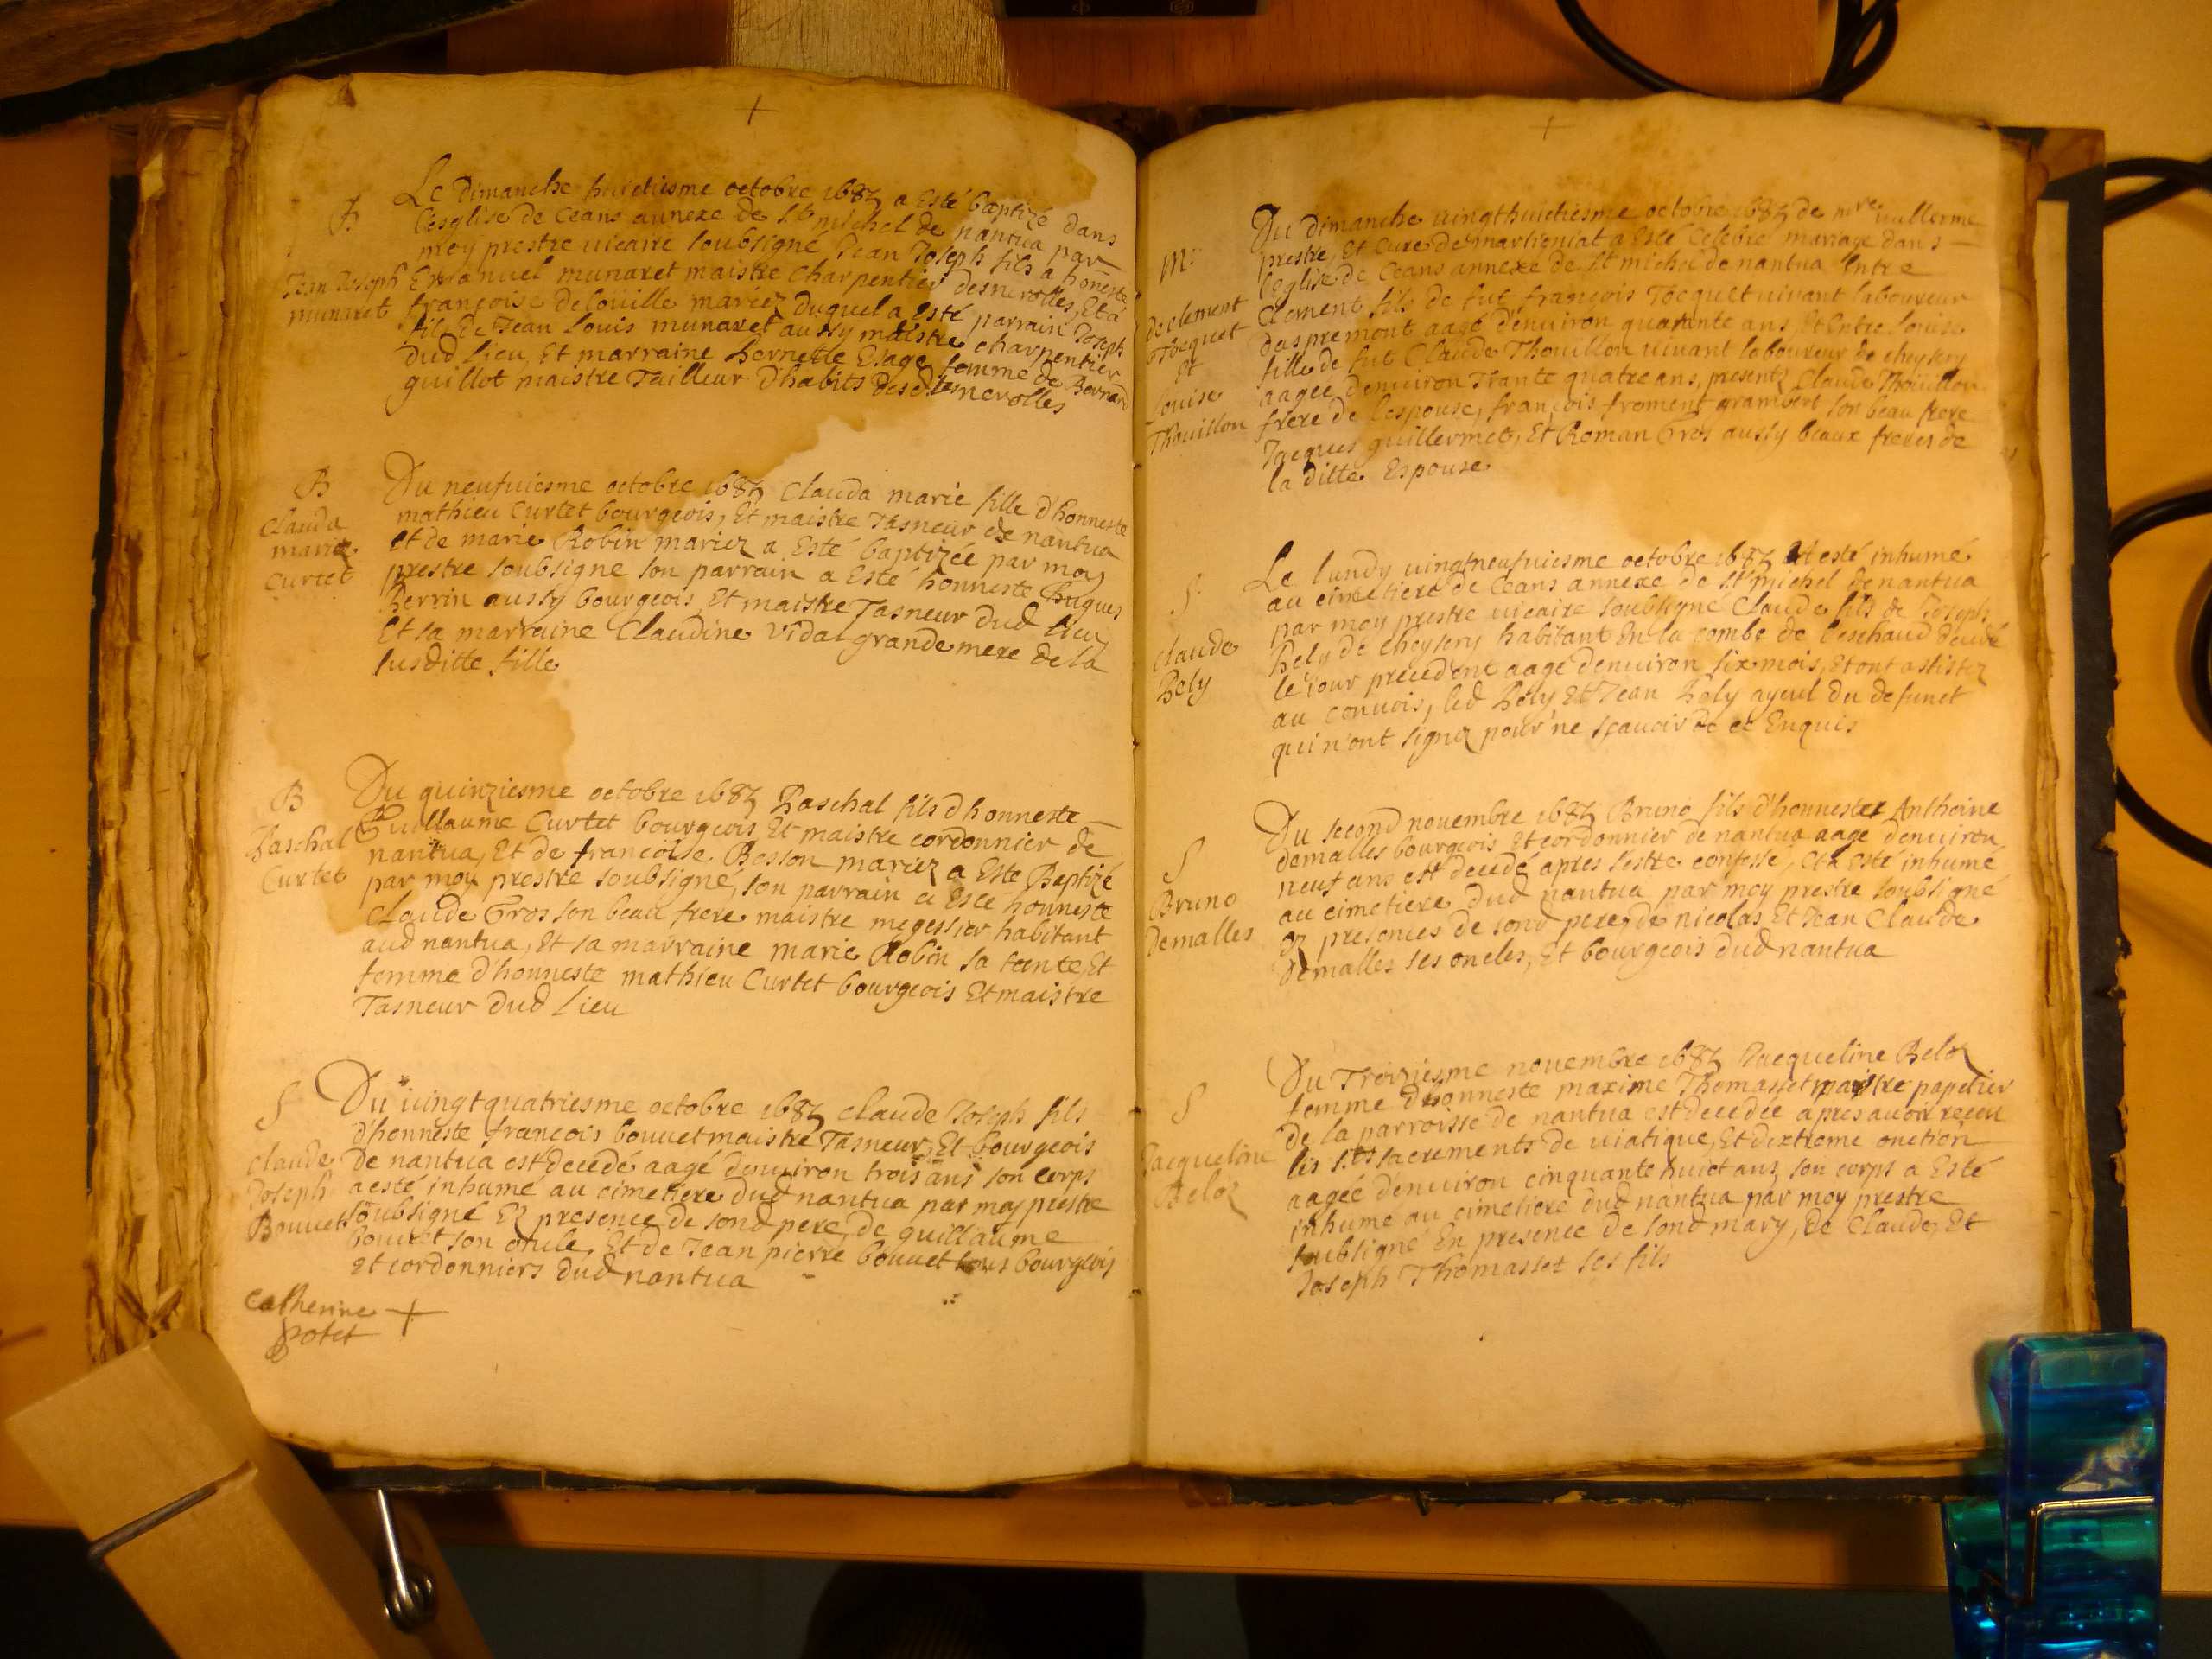 B
Jean Joseph
munaret
Le Dimanche huictiesme octobre 1684 a Esté baptizé dans
l'esglise de Ceans annexe de st michel de nantua par
moy prestre vicaire soubsigné Jean Joseph fils a honeste
Emanuel munaret maistre charpentier desnerolles, Et a
françoise delouille mariez duquel a Esté parrain Joseph
fils de Jean Louis munaret aussy maistre charpentier
dud lieu, Et marraine pernette femme de Bernard
guillot maistre Tailleur d'habits desnerolles
B
Clauda
marie
Curtet
Du neufuiesme octobre 1684 Clauda marie fille d'honneste
mathieu Curtet bourgeois, Et maistre Tasneur de nantua
Et de marie Robin mariez a Esté baptizée par moy
prestre soubsigné son parrain a Esté honneste hugues
perrin aussy bourgeois Et maistre Tasneur dud lieu
Et sa marraine Claudine vidal grandemere de la
susditte fille
B
Paschal
Curtet
Du quinziesme octobre 1684 Paschal fils d'honneste
Guillaume Curtet bourgeois Et maistre cordonnier de
nantua, Et de françoise Besson mariez a Esté Baptizé
par moy prestre soubsigné, son parrain a Esté honneste
Claude Gros son beau frere maistre megessier habitant
aud nantua, Et sa marraine marie Robin sa tante, Et
femme d'honneste mathieu Curtet bourgeois Et maistre
Tasneur dud Lieu
S
Claude
Joseph
Bouuet
Du uingtquatriesme octobre 1684 Claude Joseph fils
d'honneste françois bouuet maistre Tasneur, Et bourgeois
de nantua est decedé aagé denuiron trois ans son corps
a esté inhumé au cimetiere dud nantua par moy prestre
soubsigné Ez presence de sond pere, de guillaume
bouuet son oncle, Et de Jean pierre bouuet tous bourgeois
Et cordonniers dud nantua
Catherine
potet
m:
de clement
Jocquet
et
Louise
Thouillon
Du dimanche uingthuictiesme octobre 1684 de mre uullerme
prestre, Et Cure de martigniat a Esté Celebré mariage dans
l'eglise de Ceans annexe de st michel de nantua Entre
Clement fils de fut françois Jocquet uiuant laboureur
daspremont aagé d'enuiron quarante ans, Et Entre Louise
fille de fut Claude Thouillon uiuant laboureur de cheysery
aagee denuiron Trante quatre ans, presentz Claude Thouillon
frere de lespouse, françois froment grambert son beau frere
Jacques guillermet, Et Roman Gros aussy beaux freres de
la ditte Espouse
S
Claude
hely
Le lundy uingtneufuiesme octobre 1684 a esté inhumé
au cimetiere de Ceans annexe de st michel de nantua
par moy prestre uicaire soubsigné Claude fils de Joseph
hely de cheysery habitant En la combe de leschaud decedé
le iour precedent aagé denuiron six mois, Et ont assistez
au conuois, led hely Et Jean hely ayeul du defunct
qui n'ont signez pour ne sçauoir de ce Enquis
S
Bruno
demalles
Du second nouembre 1684 Bruno fils d'honneste Anthoine
demalles bourgeois Et cordonnier de nantua aage denuiron
neuf ans est decedé apres sestre confessé, Et a esté inhumé
au cimetiere dud nantua par moy prestre soubsigné
Ez presences de sond pere, de nicolas Et Jean Claude
demalles ses oncles, Et bourgeois dud nantua
S
Jacqueline
Beloz
Du Troiziesme nouembre 1684 Jacqueline Beloz
femme d'honneste maxime Thomasset maistre papetier
de la parroisse de nantua est decedée apres auoir receu
les sts sacrements de uiatique, Et dextreme onction
aagée denuiron cinquante huict ans, son corps a Esté
inhumé au cimetiere dud nantua par moy prestre
soubsigné En presence de sond mary, de Claude, Et
Joseph Thomasset ses fils